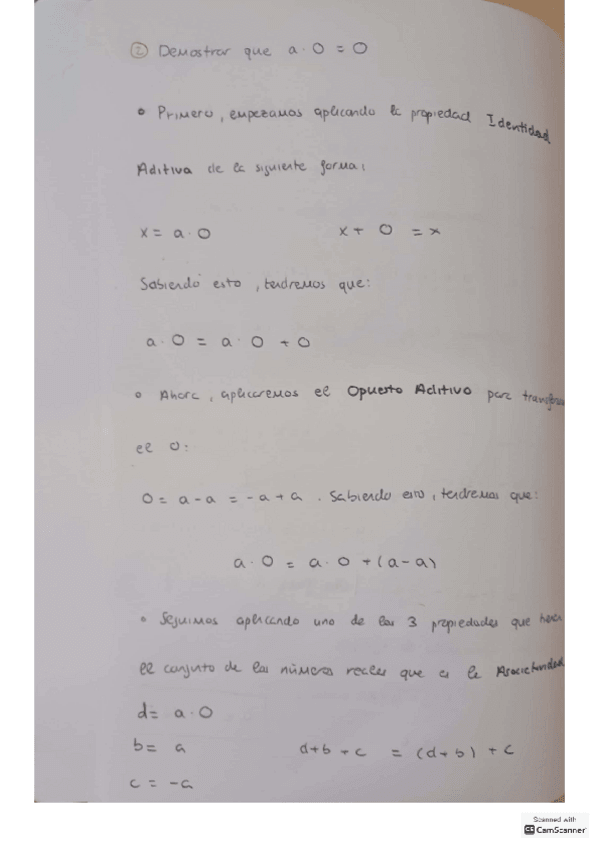 ② Demostrar que a · 0 = 0
• Primero, empezamos aplicando la propiedad Identidad
Aditiva de la siguiente forma:
x = a · 0 x + 0 = x
Sabiendo esto, tendremos que:
a · 0 = a · 0 + 0
• Ahora, aplicaremos el Opuesto Aditivo para
el 0:
0 = a - a = -a + a . Sabiendo esto, tendremos que:
a · 0 = a · 0 + (a - a)
• Seguimos aplicando uno de las 3 propiedades que
el conjunto de los números reales que es la Asociatividad
d = a · 0
b = a d + b + c = (d + b) + c
c = -a
Scanned with
CS CamScanner